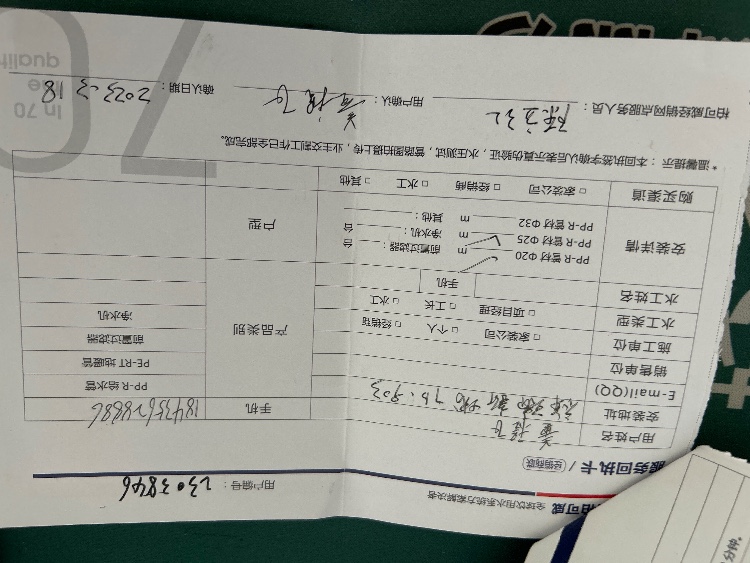 柏可威
全球饮用水系统方案解决者
服务回执卡 / 经销商联
用户编号： 2303846
用户姓名
安装地址 手机 18435628886
E-mail(QQ) PP-R 给水管
销售单位 PE-RT 地暖管
施工单位 □ 家装公司 □ 个人 □ 经销商 产品类别 前置过滤器
水工类型 □ 项目经理 □ 工长 □ 水工 净水机
水工姓名 手机
安装详情 PP-R 管材 Φ20 m 前置过滤器： 台 户型
PP-R 管材 Φ25 m 净水机： 台
PP-R 管材 Φ32 m 其他：
购买渠道 □ 家装公司 □ 经销商 □ 水工 □ 其他
*温馨提示：本回执签字确认后表示真伪验证，水压测试，管路图拍摄上传，业主交割工作已全部完成。
柏可威经销网点服务人员： 用户确认： 确认日期： 2023.3.18
In 70
like
quality
70
分钟。